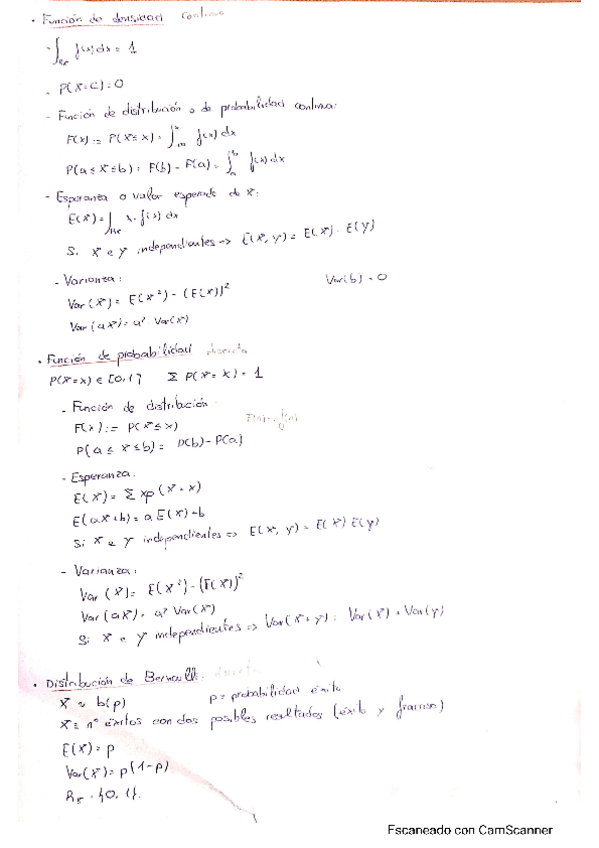 • Función de densidad continua
- ∫ f(x)dx = 1
- P(X=C)=0
- Función de distribución o de probabilidad continua:
F(x) := P(X≤x) = ∫ f(x) dx
P(a ≤ X ≤ b) = F(b) - F(a) = ∫ f(x) dx
- Esperanza o valor esperado de X:
E(X) = ∫ x · f(x) dx
Si X e Y independientes => E(X, Y) = E(X) · E(Y)
- Varianza: Var(b) = 0
Var (X) = E(X²) - (E(X))²
Var (aX) = a² Var(X)
• Función de probabilidad discreta
P(X=x) ∈ [0,1] Σ P(X=x) = 1
- Función de distribución
F(x) := P(X ≤ x)
P(a ≤ X ≤ b) = P(b) - P(a)
- Esperanza:
E(X) = Σ xp (X = x)
E(aX+b) = a E(X) + b
Si X e Y independientes => E(X, Y) = E(X) E(Y)
- Varianza:
Var (X) = E(X²) - (E(X))²
Var (aX) = a² Var(X)
Si X e Y independientes => Var(X+Y) = Var(X) + Var(Y)
• Distribución de Bernoulli: discreta
X ~ b(p) p = probabilidad éxito
X = nº éxitos con dos posibles resultados (éxito y fracaso)
E(X) = p
Var(X) = p(1-p)
Escaneado con CamScanner